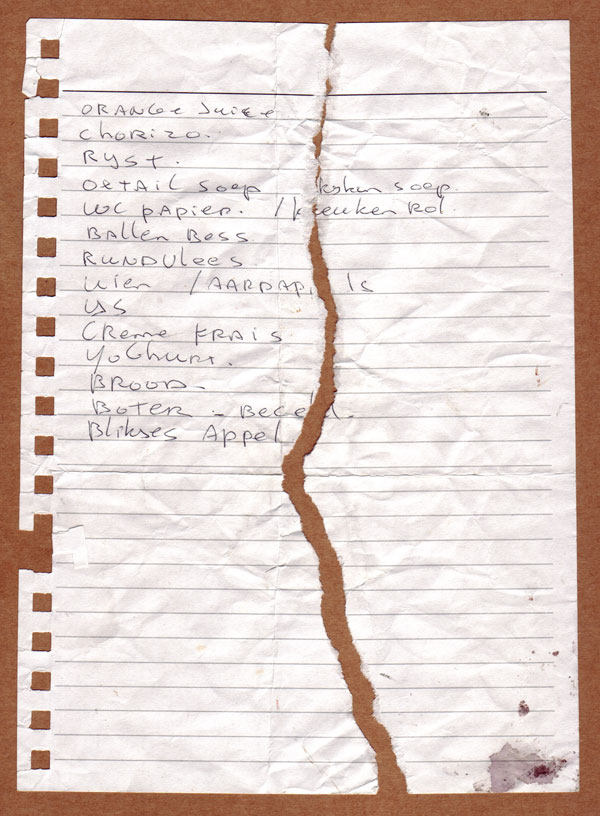 ORANGE JuiCe
ChoRizo.
RYST.
OSTAIL SOEP soep.
WC PAPIER. / keuken Rol.
BAllen Bess
RUNDVLees
uien / AARDAP
IJS
CReme FRAIS
YoGhuRT.
BROOD-
BOTER - Bece
Blikses Appel